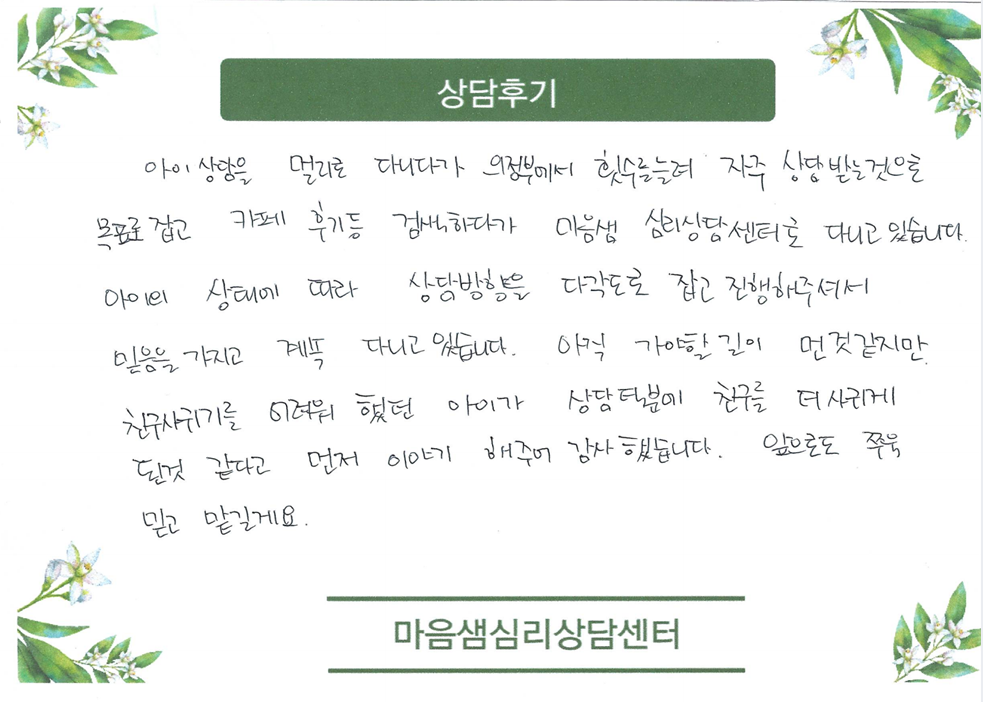 상담후기
아이 상담을 멀리로 다니다가 의정부에서 횟수를늘려 자주 상담 받는것으로
목표로 잡고 카페 후기등 검색하다가 마음샘 심리상담센터로 다니고 있습니다.
아이의 상태에 따라 상담방향을 다각도로 잡고 진행해주셔서
믿음을 가지고 계속 다니고 있습니다. 아직 가야할 길이 먼것같지만
친구사귀기를 어려워 했던 아이가 상담덕분에 친구를 더 사귀게
된것 같다고 먼저 이야기 해주어 감사했습니다. 앞으로도 쭈욱
믿고 맡길게요.
마음샘심리상담센터